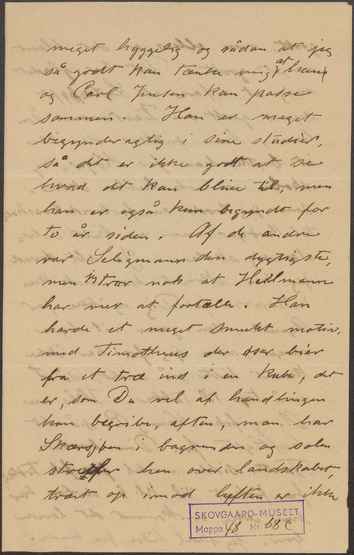 meget hyggelig og sådan at jeg
så godt kan tænke mig at han
og Carl Jensen kan passe
sammen. Han er meget
begynderagtig i sine studier,
så det er ikke godt at se
hvad det kan blive til, men
han er også kun begyndt for
to år siden. Af de andre
var Seligmann den dygtigste,
men jeg tror nok at Hellmann
har mer at fortælle. Han
havde et meget smukt motiv
med Timotheus der bær
fra et træ ind i en kube, det
er, som Du vel af handlingen
kan begribe, aften, man har
i bagrunden og solen
hen over landskabet,
op imod luften er ikke
SKOVGAARD-MUSEET
Mappe 48 Nr. 68c